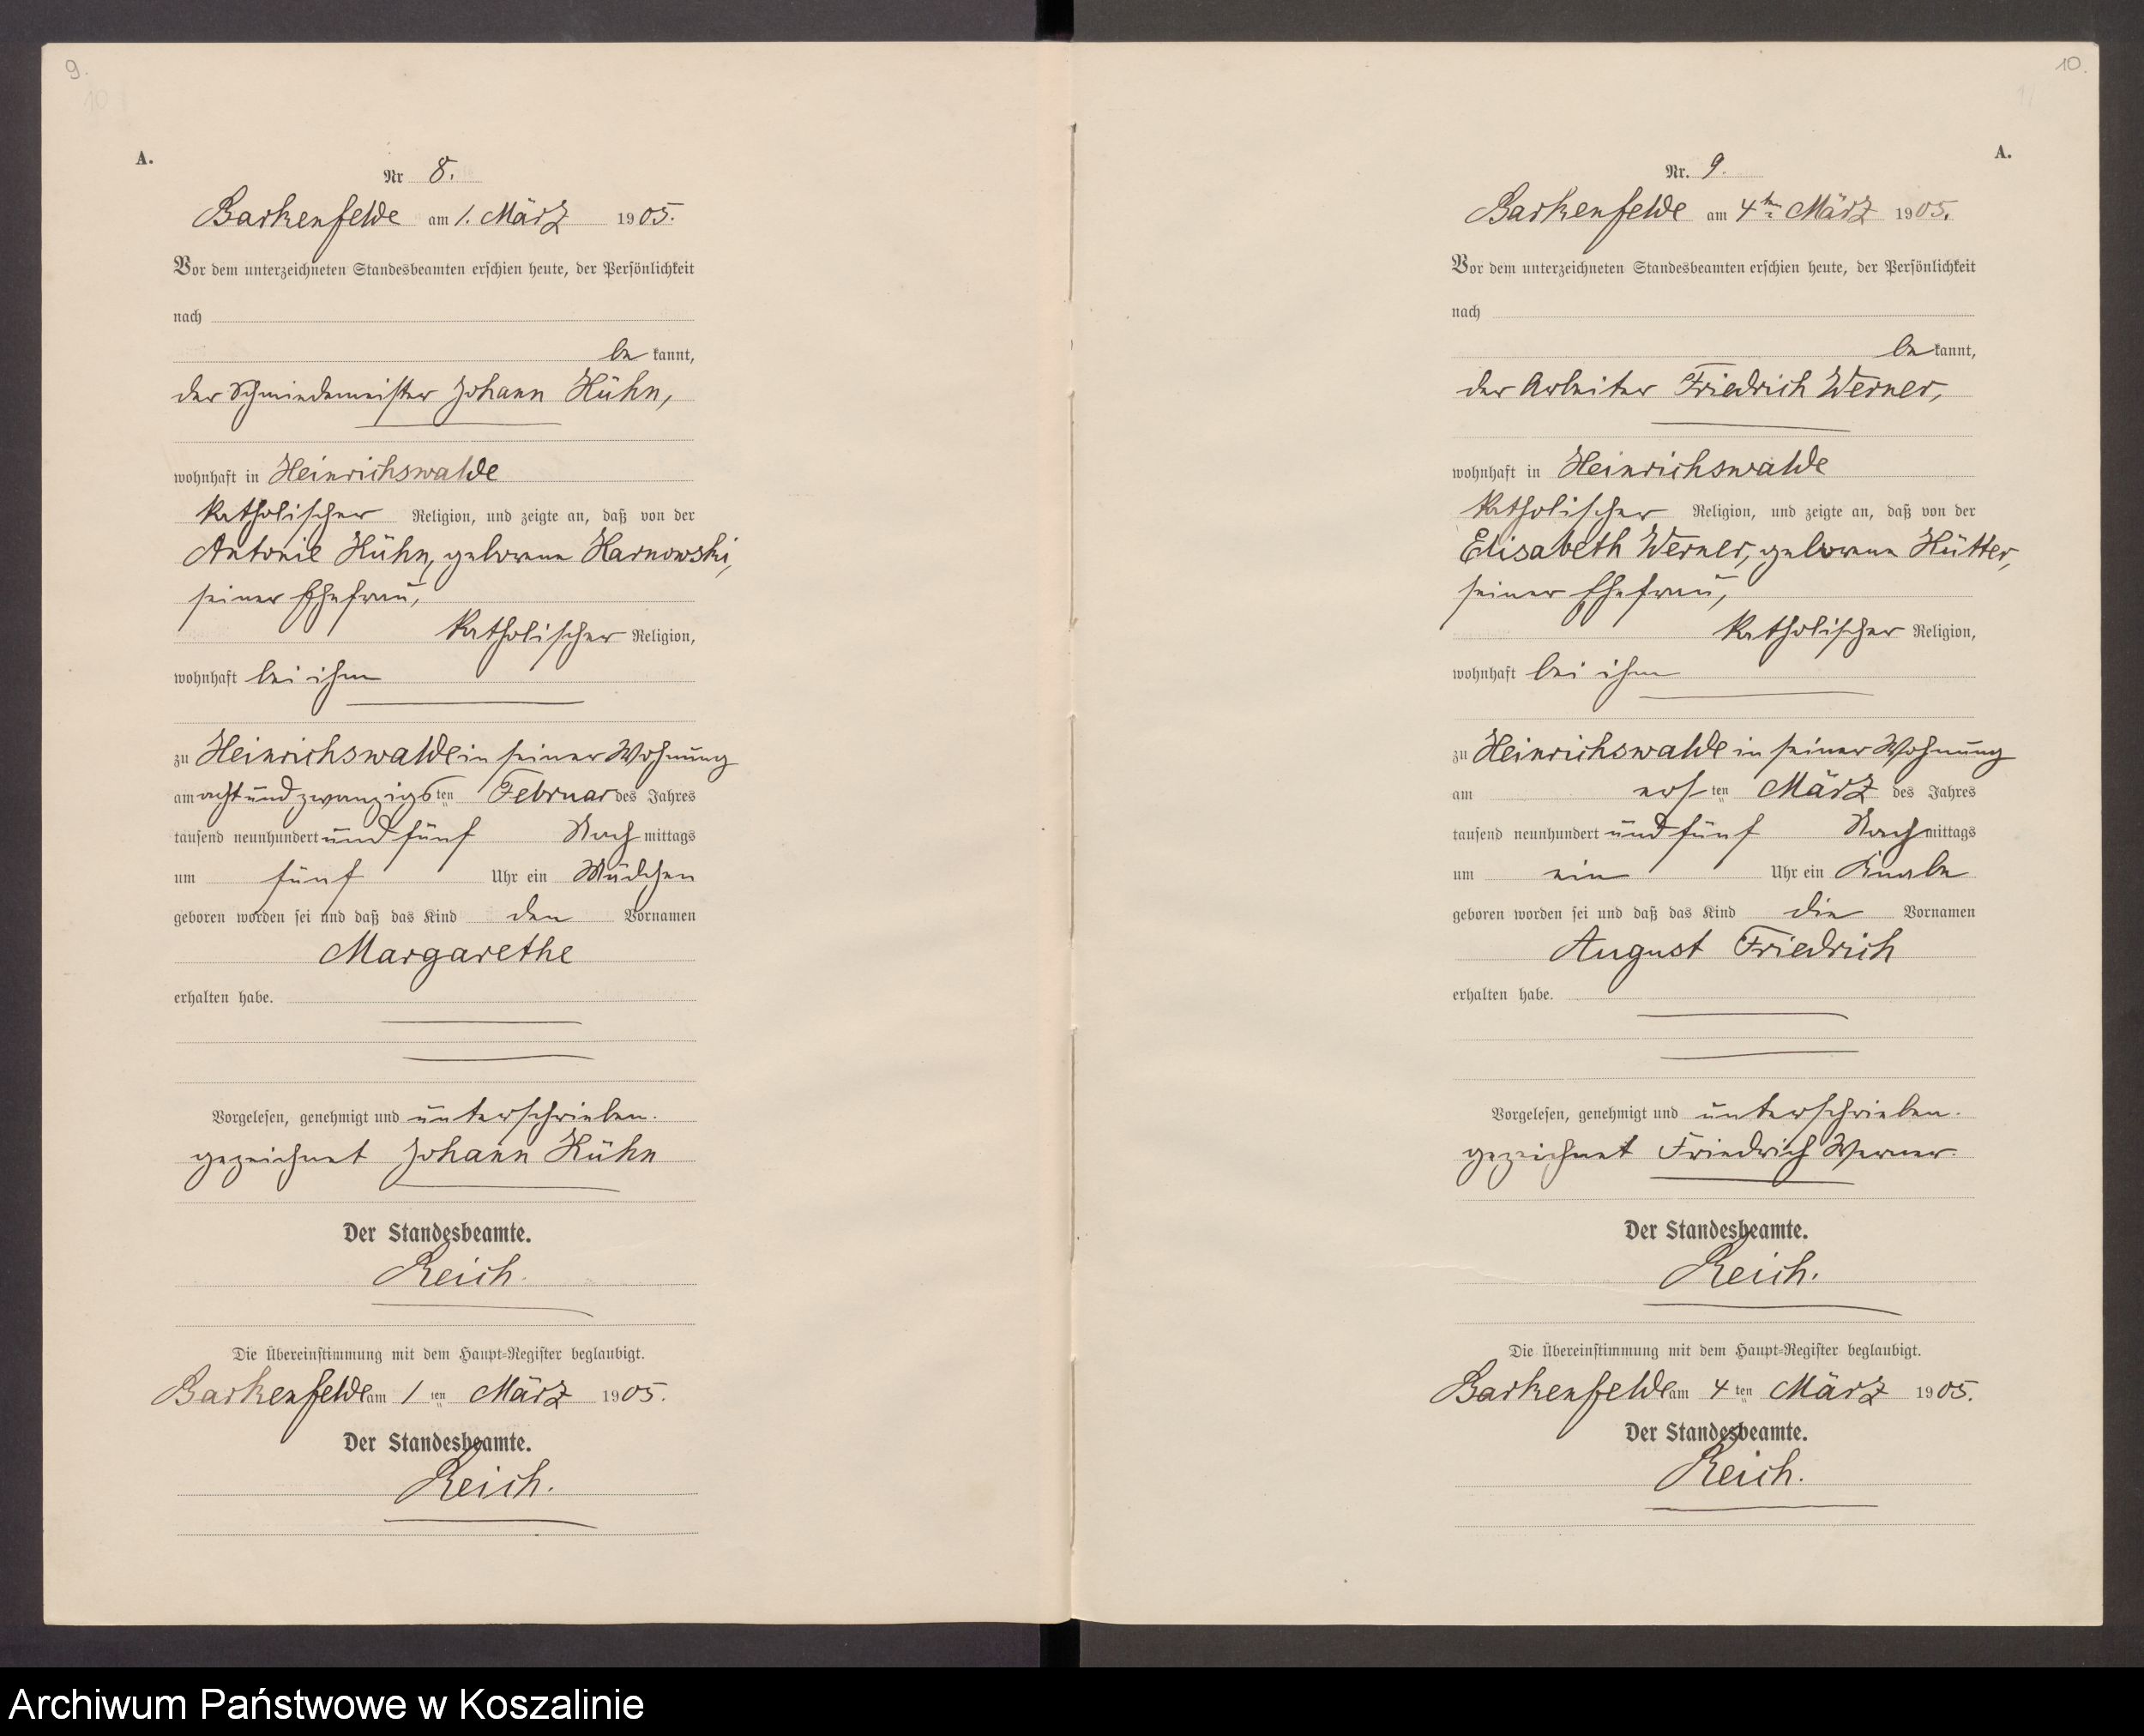 9.
A.
Nr 8.
Barkenfelde am 1. März 1905.
Vor dem unterzeichneten Standesbeamten erschien heute, der Persönlichkeit
nach
be kannt,
der Schmiedemeister Johann Kühn,
wohnhaft in Heinrichswalde
katholischer Religion, und zeigte an, daß von der
Antonie Kühn, geborene Harnowski,
seiner Ehefrau,
katholischer Religion,
wohnhaft bei ihm
zu Heinrichswalde in seiner Wohnung
am acht und zwanzigsten Februar des Jahres
tausend neunhundert und fünf Nach mittags
um fünf Uhr ein Mädchen
geboren worden sei und daß das Kind den Vornamen
Margarethe
erhalten habe.
Vorgelesen, genehmigt und unterschrieben.
gezeichnet Johann Kühn
Der Standesbeamte.
Reich.
Die Übereinstimmung mit dem Haupt-Register beglaubigt.
Barkenfelde am 1 ten März 1905.
Der Standesbeamte.
Reich.
10.
A.
Nr. 9.
Barkenfelde am 4ten März 1905.
Vor dem unterzeichneten Standesbeamten erschien heute, der Persönlichkeit
nach
be kannt,
der Arbeiter Friedrich Werner,
wohnhaft in Heinrichswalde
katholischer Religion, und zeigte an, daß von der
Elisabeth Werner, geborene Hütter,
seiner Ehefrau,
katholischer Religion,
wohnhaft bei ihm
zu Heinrichswalde in seiner Wohnung
am ersten März des Jahres
tausend neunhundert und fünf Nach mittags
um ein Uhr ein Knabe
geboren worden sei und daß das Kind die Vornamen
August Friedrich
erhalten habe.
Vorgelesen, genehmigt und unterschrieben.
gezeichnet Friedrich Werner.
Der Standesbeamte.
Reich.
Die Übereinstimmung mit dem Haupt-Register beglaubigt.
Barkenfelde am 4 ten März 1905.
Der Standesbeamte.
Reich.
Archiwum Państwowe w Koszalinie